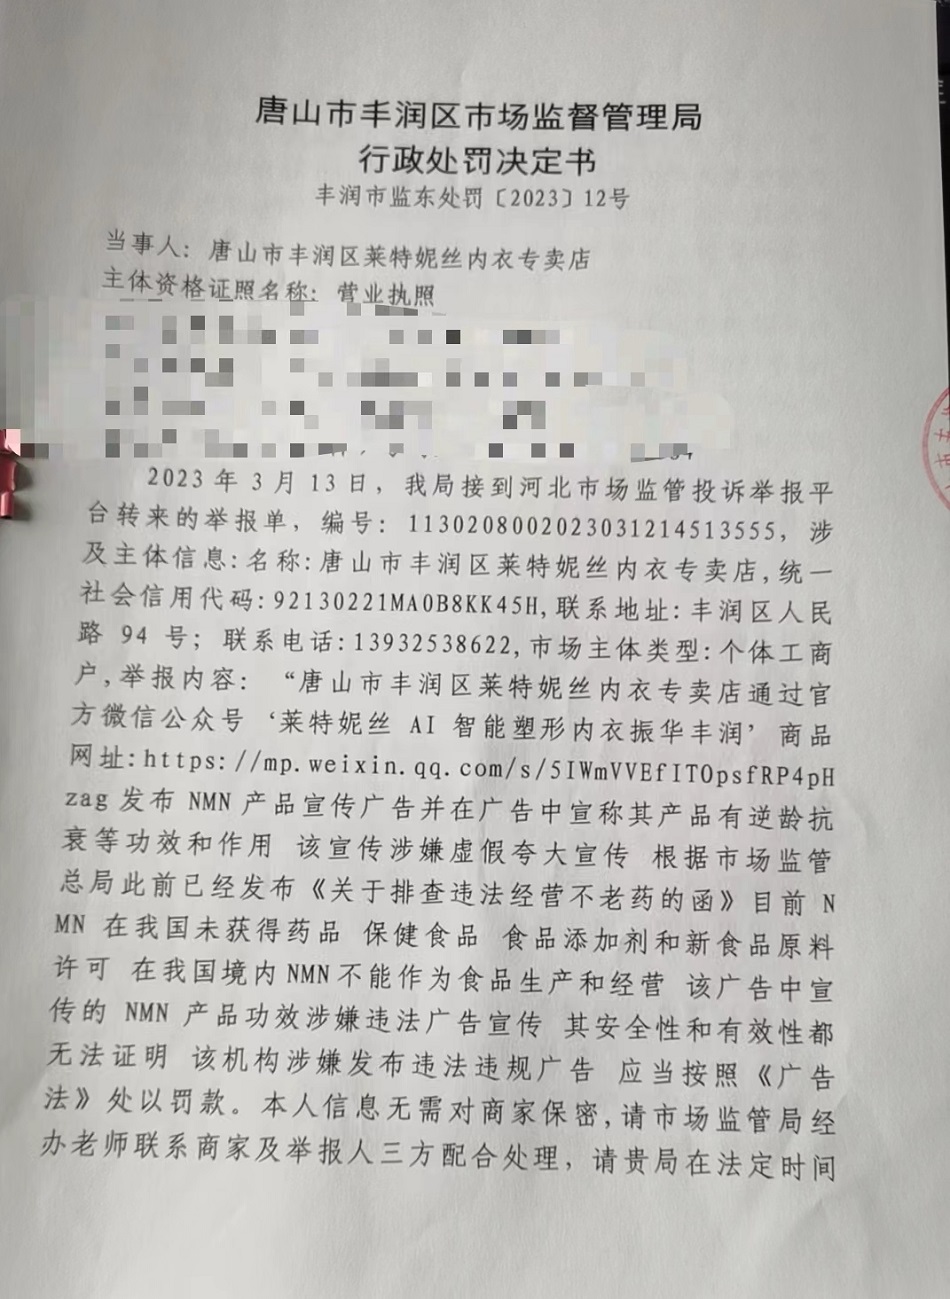 唐山市丰润区市场监督管理局
行政处罚决定书
丰润市监东处罚〔2023〕12号
当事人：唐山市丰润区莱特妮丝内衣专卖店
主体资格证照名称：营业执照
2023年3月13日，我局接到河北市场监管投诉举报平
台转来的举报单，编号：1130208002023031214513555，涉
及主体信息:名称:唐山市丰润区莱特妮丝内衣专卖店,统一
社会信用代码:92130221MA0B8KK45H,联系地址:丰润区人民
路 94 号；联系电话:13932538622,市场主体类型:个体工商
户,举报内容：“唐山市丰润区莱特妮丝内衣专卖店通过官
方微信公众号‘莱特妮丝 AI 智能塑形内衣振华丰润’商品
网址:https://mp.weixin.qq.com/s/5IWmVVEfITOpsfRP4pH
zag 发布 NMN 产品宣传广告并在广告中宣称其产品有逆龄抗
衰等功效和作用 该宣传涉嫌虚假夸大宣传 根据市场监管
总局此前已经发布《关于排查违法经营不老药的函》目前 N
MN 在我国未获得药品 保健食品 食品添加剂和新食品原料
许可 在我国境内NMN不能作为食品生产和经营 该广告中宣
传的 NMN 产品功效涉嫌违法广告宣传 其安全性和有效性都
无法证明 该机构涉嫌发布违法违规广告 应当按照《广告
法》处以罚款。本人信息无需对商家保密,请市场监管局经
办老师联系商家及举报人三方配合处理，请贵局在法定时间